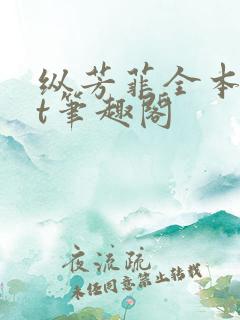 纵芳菲全本
t笔趣阁
夜流疏
未经同意禁止转载